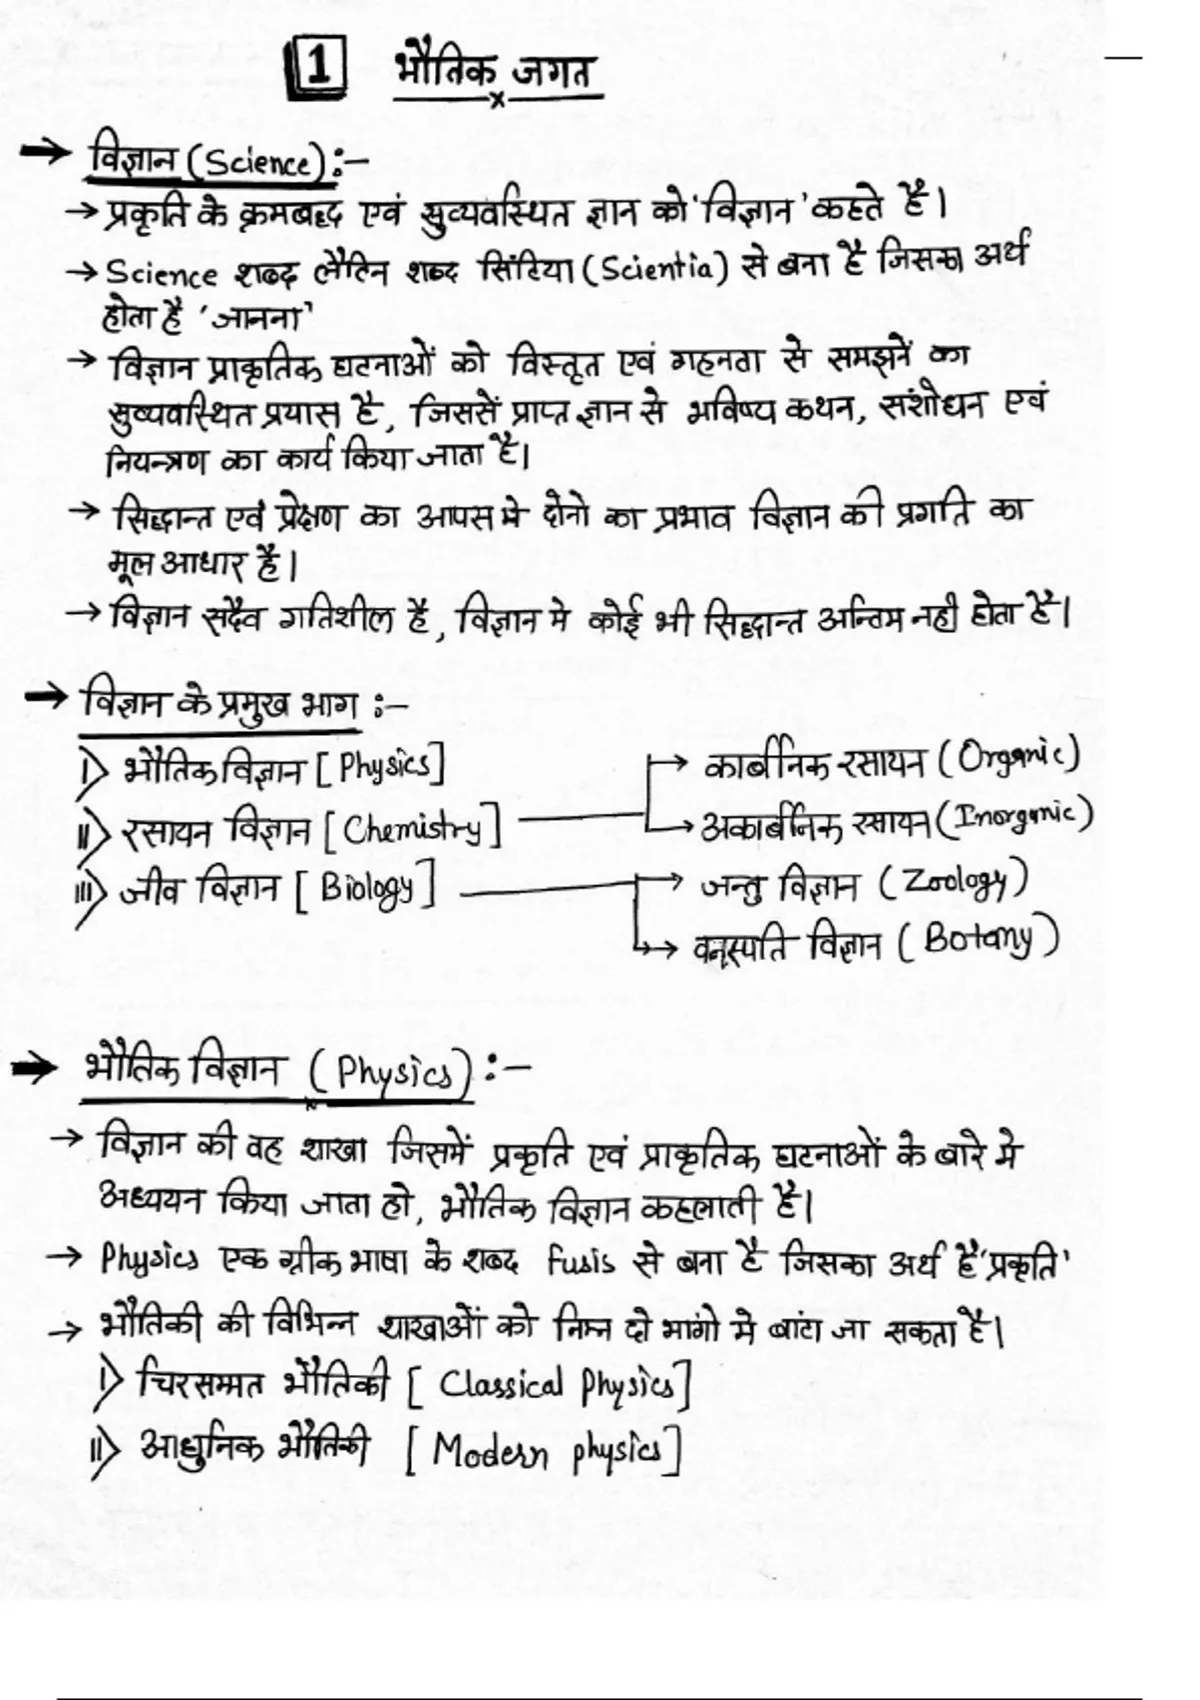 1 भौतिक जगत
→ विज्ञान (Science):-
→ प्रकृति के क्रमबद्ध एवं सुव्यवस्थित ज्ञान को 'विज्ञान' कहते है।
→ Science शब्द लैटिन शब्द सिंटिया (Scientia) से बना है जिसका अर्थ
होता है 'जानना'
→ विज्ञान प्राकृतिक घटनाओं को विस्तृत एवं गहनता से समझनें का
सुव्यवस्थित प्रयास है, जिससें प्राप्त ज्ञान से भविष्य कथन, संशोधन एवं
नियन्त्रण का कार्य किया जाता है।
→ सिद्धान्त एवं प्रेक्षण का आपस मे दोनो का प्रभाव विज्ञान की प्रगति का
मूल आधार है।
→ विज्ञान सदैव गतिशील है, विज्ञान मे कोई भी सिद्धान्त अन्तिम नही होता है।
→ विज्ञान के प्रमुख भाग :-
i) भौतिक विज्ञान [Physics] → कार्बनिक रसायन (Organic)
ii) रसायन विज्ञान [Chemistry] → अकार्बनिक रसायन (Inorganic)
iii) जीव विज्ञान [Biology] → जन्तु विज्ञान (Zoology)
→ वनस्पति विज्ञान (Botany)
→ भौतिक विज्ञान (Physics) :-
→ विज्ञान की वह शाखा जिसमें प्रकृति एवं प्राकृतिक घटनाओं के बारे मे
अध्ययन किया जाता हो, भौतिक विज्ञान कहलाती है।
→ Physics एक ग्रीक भाषा के शब्द Fusis से बना है जिसका अर्थ है 'प्रकृति'
→ भौतिकी की विभिन्न शाखाओं को निम्न दो भागो मे बांटा जा सकता है।
i) चिरसम्मत भौतिकी [Classical Physics]
ii) आधुनिक भौतिकी [Modern physics]